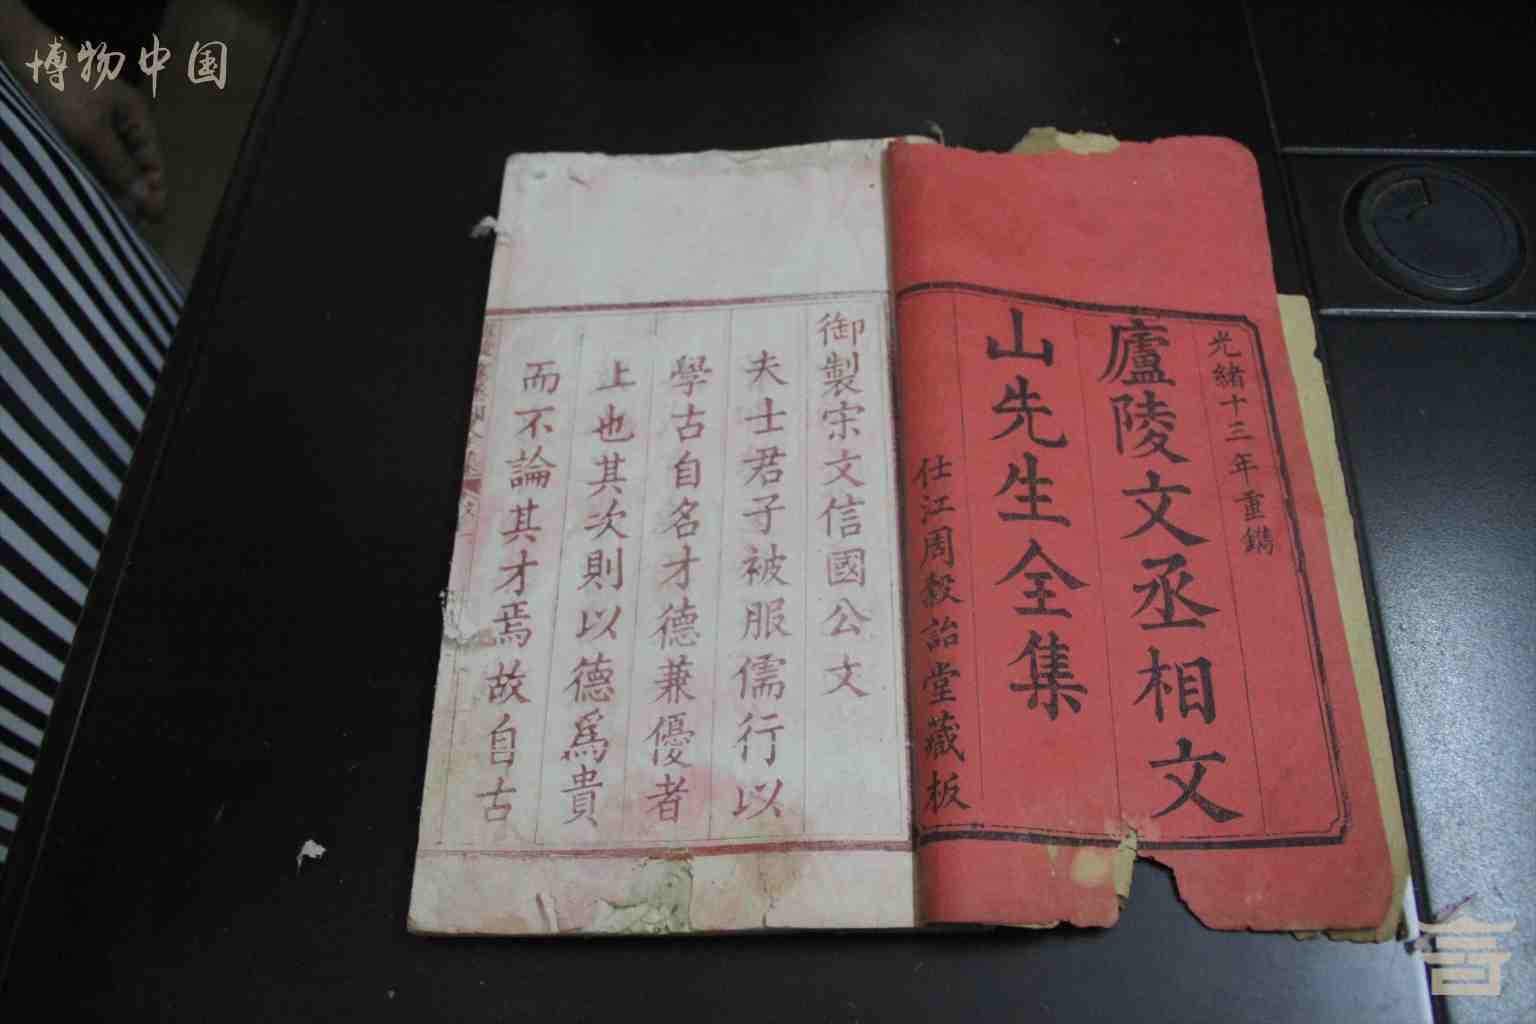 博物中国
光緒十三年重鐫
廬陵文丞相文
山先生全集
仕江周穀詒堂藏板
御製宋文信國公文
夫士君子被服儒行以
學古自名才德兼優者
上也其次則以德爲貴
而不論其才焉故自古